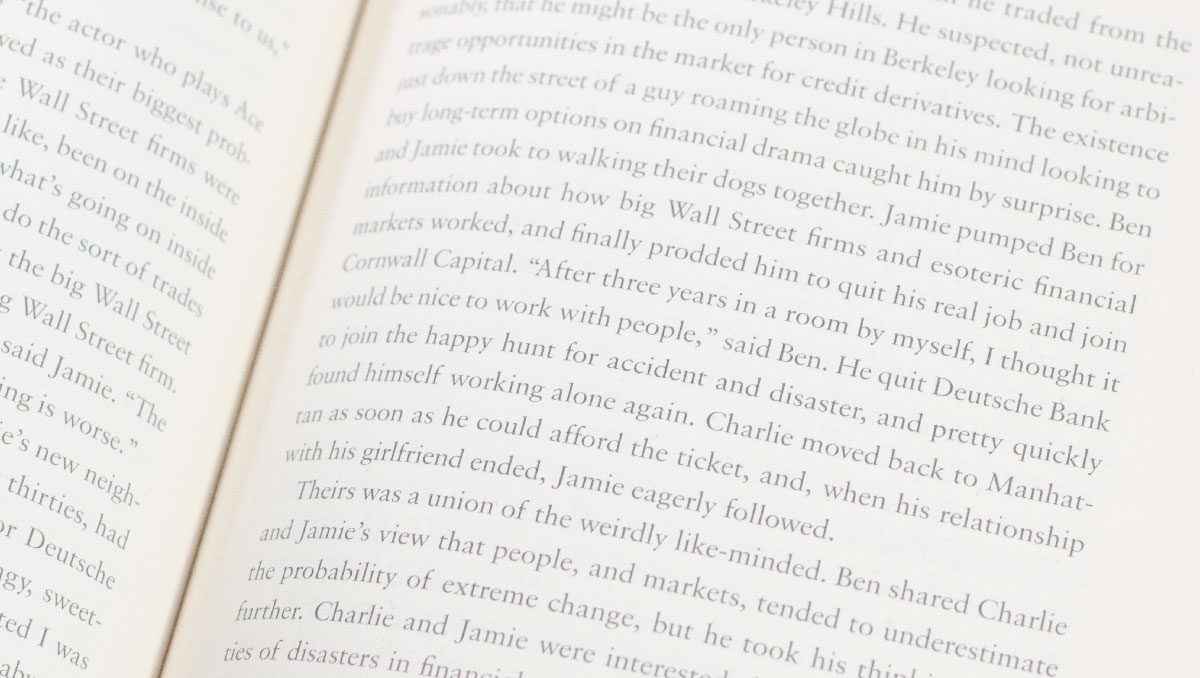 nse to us,"
the actor who plays Ace
ved as their biggest prob-
Wall Street firms were
like, been on the inside
what's going on inside
do the sort of trades
the big Wall Street
g Wall Street firm.
said Jamie. "The
ing is worse."
ie's new neigh-
thirties, had
or Deutsche
gy, sweet-
ted I was
he traded from the
keley Hills. He suspected, not unrea-
sonably, that he might be the only person in Berkeley looking for arbi-
trage opportunities in the market for credit derivatives. The existence
just down the street of a guy roaming the globe in his mind looking to
buy long-term options on financial drama caught him by surprise. Ben
and Jamie took to walking their dogs together. Jamie pumped Ben for
information about how big Wall Street firms and esoteric financial
markets worked, and finally prodded him to quit his real job and join
Cornwall Capital. "After three years in a room by myself, I thought it
would be nice to work with people," said Ben. He quit Deutsche Bank
to join the happy hunt for accident and disaster, and pretty quickly
found himself working alone again. Charlie moved back to Manhat-
tan as soon as he could afford the ticket, and, when his relationship
with his girlfriend ended, Jamie eagerly followed.
Theirs was a union of the weirdly like-minded. Ben shared Charlie
and Jamie's view that people, and markets, tended to underestimate
the probability of extreme change, but he took his
further. Charlie and Jamie were
ties of disasters in